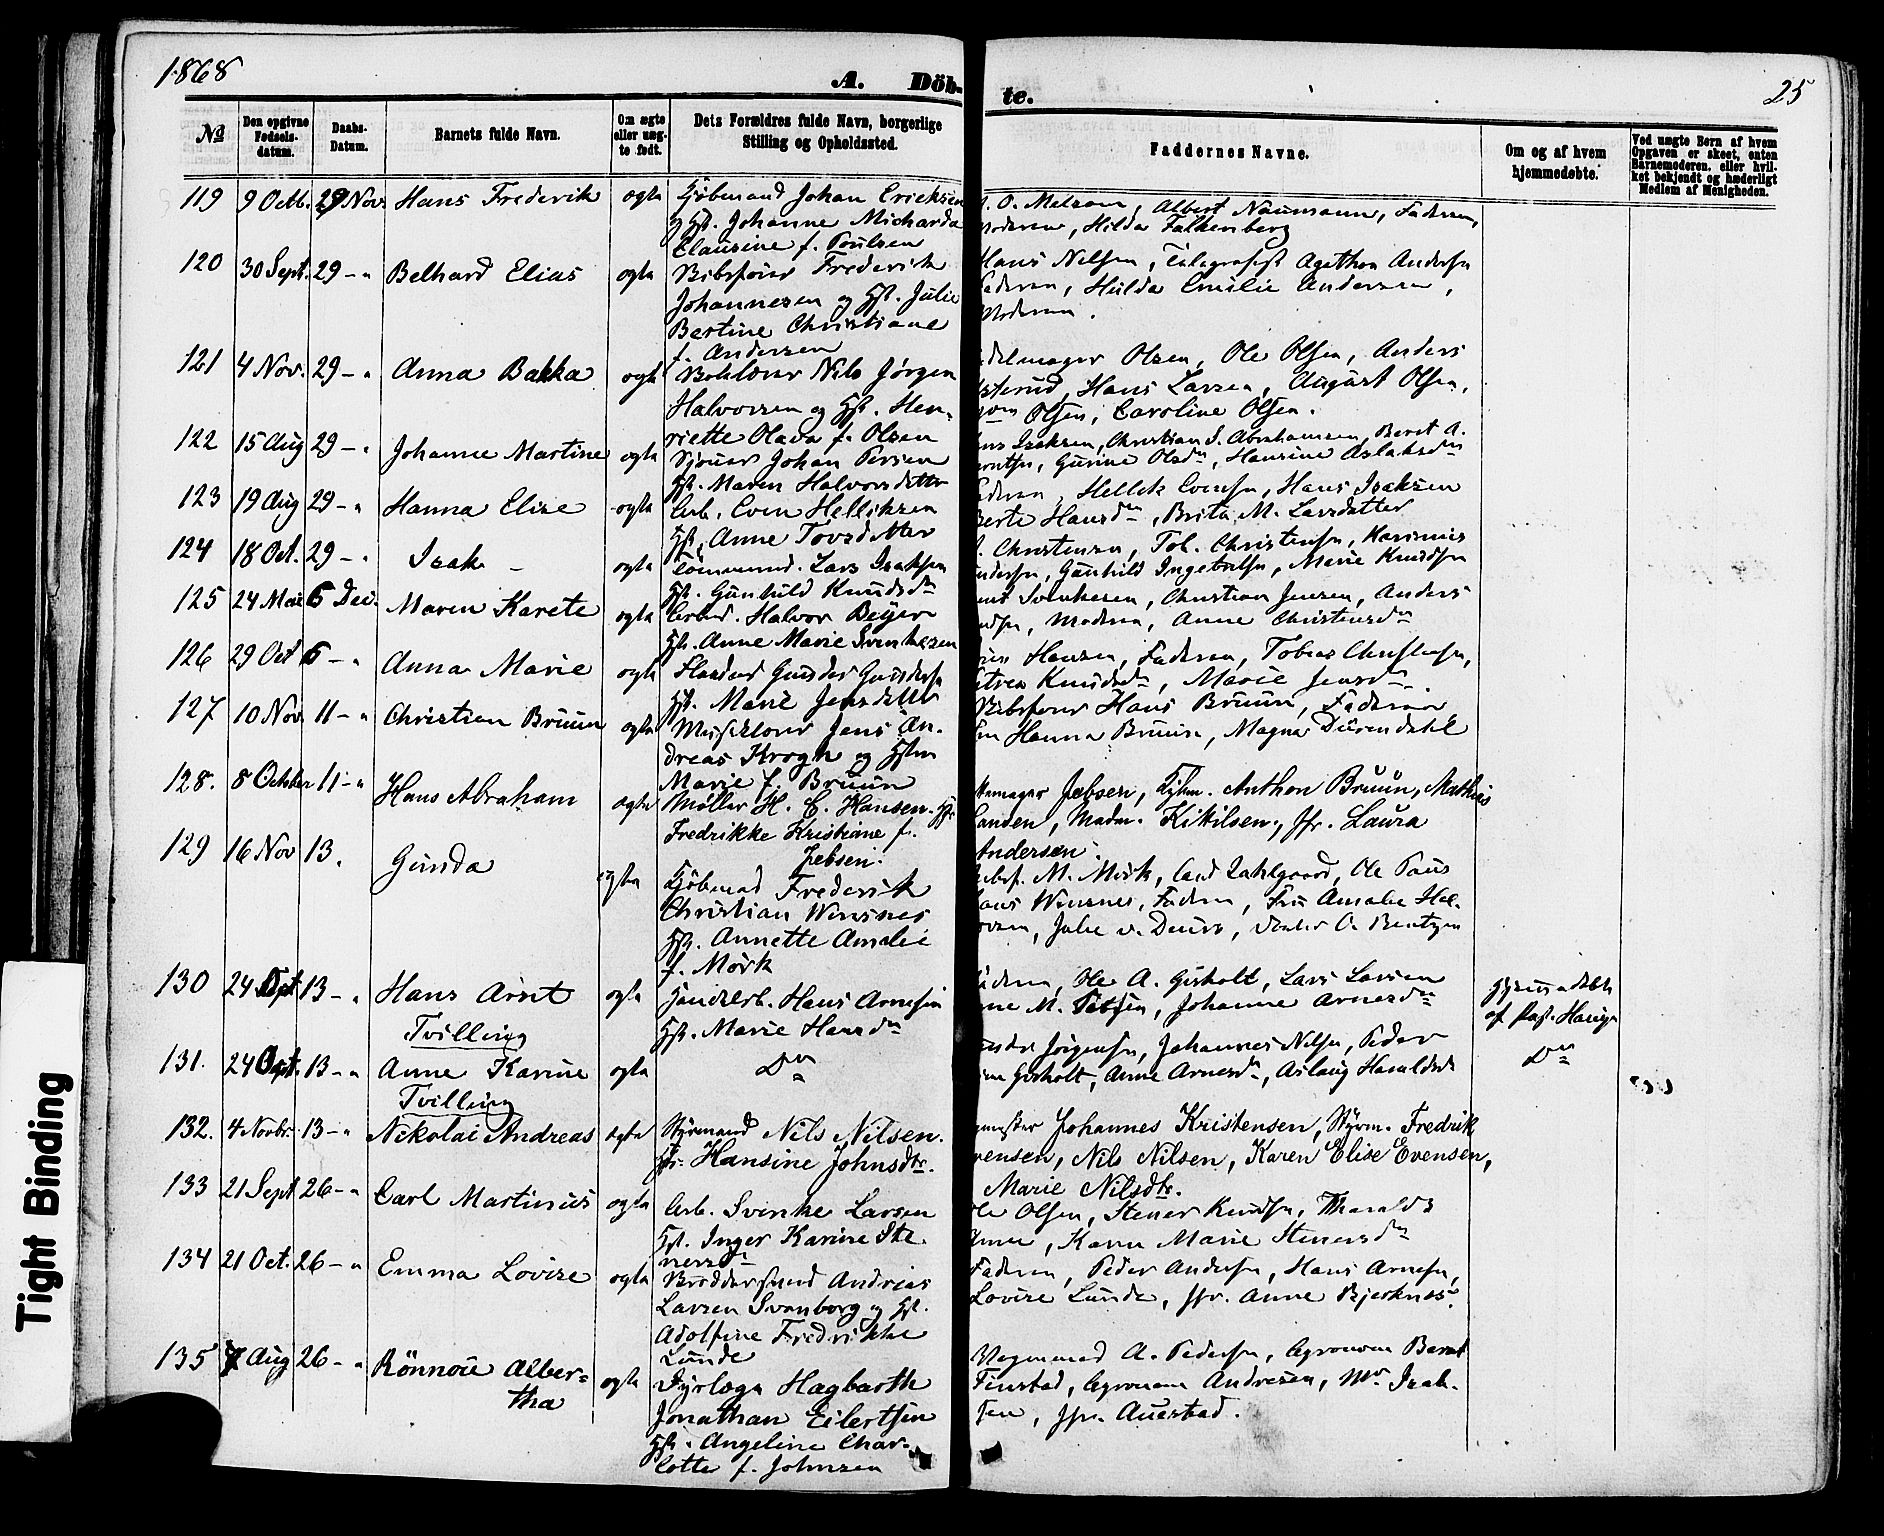 1868
A. Döb-
te.
25
No
Den opgivne Fødsels-datum.
Daabs-Datum.
Barnets fulde Navn.
Om ægte eller uægte født.
Dets Forældres fulde Navn, borgerlige Stilling og Opholdssted.
Faddernes Navne.
Om og af hvem hjemmedøbte.
Ved uægte Børn af hvem Opgaven er skeet, enten Barnemoderen, eller hvilket bekjendt og hæderligt Medlem af Menigheden.
119 9 Octb. 29 Nov. Hans Frederik ægte Kjøbmand Johan Ericksen
og Hst. Johanne Micharda
Clausine f. Poulsen
O. Melsom, Albert Naumann, Faderen,
Moderen, Hilda Falkenberg
120 30 Sept. 29 - " Belhard Elias ægte Bebsfører Frederik
Johannesen og Hst. Julie
Bertine Christiane
f. Andersen
Hans Nilsen, Telegrafist Agathon Andersen
Faderen, Hulda Emilie Andersen,
Moderen.
121 4 Nov. 29 - " Anna Bakka ægte Nils Jørgen
Halvorsen og Hst. Hen-
riette Olava f. Olsen
Olsen, Ole Olsen, Anders
Hans Larsen, August Olsen,
Olsen, Caroline Olsen.
122 15 Aug 29 - " Johanne Martine ægte Johan Persen
Hst. Maren Halvorsdatter
Isaksen, Christian S. Abrahamsen, Beret A.
Gurine Olsdn, Hansine Aslaksdn
123 19 Aug 29 - " Hanna Elise ægte Arb. Even Helliksen
Hst. Anne Tovsdatter
Faderen, Hellek Evensen, Hans Isaksen
Berte Hansdn, Brita M. Larsdatter
124 18 Oct. 29 - " Isak - ægte Tømmermd. Lars Isaksen
Hst. Gunhild Knudsdn
Christensen, Tob. Christensen, Karinius
Gunhild Ingebretsen, Marie Knudsen
125 24 Mai 6 Dec. Maren Karete ægte Arbmd. Halvor Beijer
Hst. Anne Marie Svenkesen
Svenkesen, Christian Jensen, Anders
Moderen, Anne Christensdn
126 29 Oct 6 - " Anna Marie ægte Gunder Gundersen
Hst. Marie Jensdatter
Hansen, Faderen, Tobias Christensen,
Knudsdn, Marie Jensdn
127 10 Nov 11 - " Christian Bruun ægte Jens An-
dreas Krogh og Hstru
Marie f. Bruun
Bebsfører Hans Bruun, Faderen
Hanna Bruun, Magna Durendahl
128. 8 October 11 - " Hans Abraham ægte Møller H. C. Hansen. Hst
Fredrikke Kristiane f.
Jebsen.
Jebsen, Kjbm. Anthon Bruun, Mathias
Landen, Madm. Kittilsen, Jfr. Laura
Andersen.
129 16 Nov 13. Gunda ægte Kjøbmand Frederik
Christian Wensnes
Hst. Annette Amalie
f. Mørk
M. Mørk, Cand Dahlgaard, Ole Paus
Hans Wensnes, Faderen, Fru Amalie
Julie v. Deurs, O. Bentzen
130 24 Spt 13 - " Hans Arnt
Tvilling ægte Hans Arnesen
Hst. Marie Hansdn
Faderen, Ole A. Gisholt, Lars Larsen
M. Johanne Arnesdn
Hjemmedøbt
af Past. Hansen
131. 24 Spt. 13 - " Anne Karine
Tvilling ægte Do
Jørgensen, Johannes Nilsen, Peder
Gisholt, Anne Arnesdn, Aslaug Haraldsd
Do
132. 4 Novbr. 13 - " Nikolai Andreas ægte Styrmand Nils Nilsen.
Hst. Hansine Johnsdtr.
Johannes Kristensen, Styrm. Fredrik
Evensen, Nils Nilsen, Karen Elise Evensen,
Marie Nilsdtr.
133 21 Sept 26 - " Carl Martinius ægte Arb. Svenke Larsen
Hst. Inger Karine Ste-
nersdn
Olsen, Stener Knudsen, Tharald
Karen Marie Stenersdn
134 21 Oct. 26 - " Emma Lovise ægte Andreas
Larsen Svanborg og Hst.
Adolfine Fredrikke
Lunde
Faderen, Peder Andersen, Hans Arnesen,
Lovise Lunde, Jfr. Anne Bjerknes.
135 7 Aug 26 - " Rönnou Alber-
tha ægte Dyrlæge Hagbarth
Jonathan Eilertsen
Hst. Angeline Char-
lotte f. Johnsen
A. Pedersen, Agronom Bernt
Finstad, Agronom Andresen, Mr. Isak-
sen, Jfr. Auestad.
Tight Binding